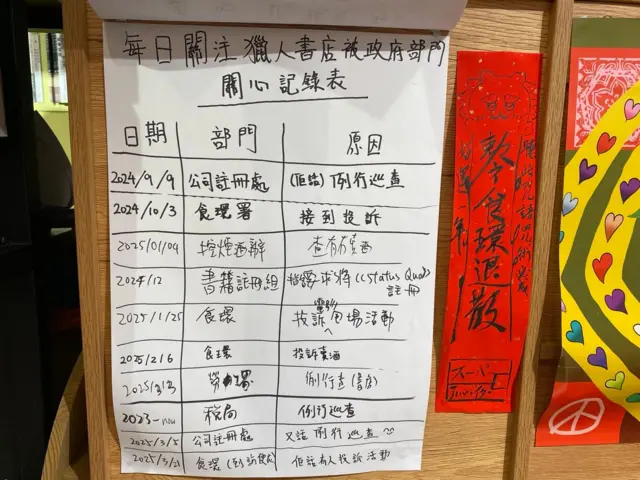 每日關注獵人書店被政府部門
關心記錄表
日期 部門 原因
2024/9/9 公司註冊處 (佢話) 例行巡查
2024/10/3 食環署 接到投訴
2025/01/09 控煙酒辦 查有冇賣酒
2024/12 書籍註冊組 指要求將《Status Quo》註冊
2025/1/25 食環 投訴墟場活動
2025/2/6 食環 投訴賣酒
勞工署 例行查(書店)
2023-now 稅局 例行巡查
2025/3/5 公司註冊處 又話例行巡查
2025/3/21 食環 佢話有人投訴活動
食環退散
一年
スーパー